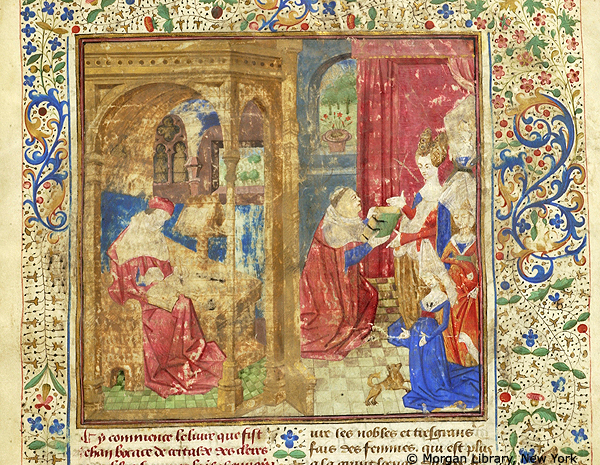 Cy commence le liure que fist
Jehan bocace de certalde des cleres
ure les nobles et tresgrans
fais des femmes, qui est plus
© Morgan Library, New York